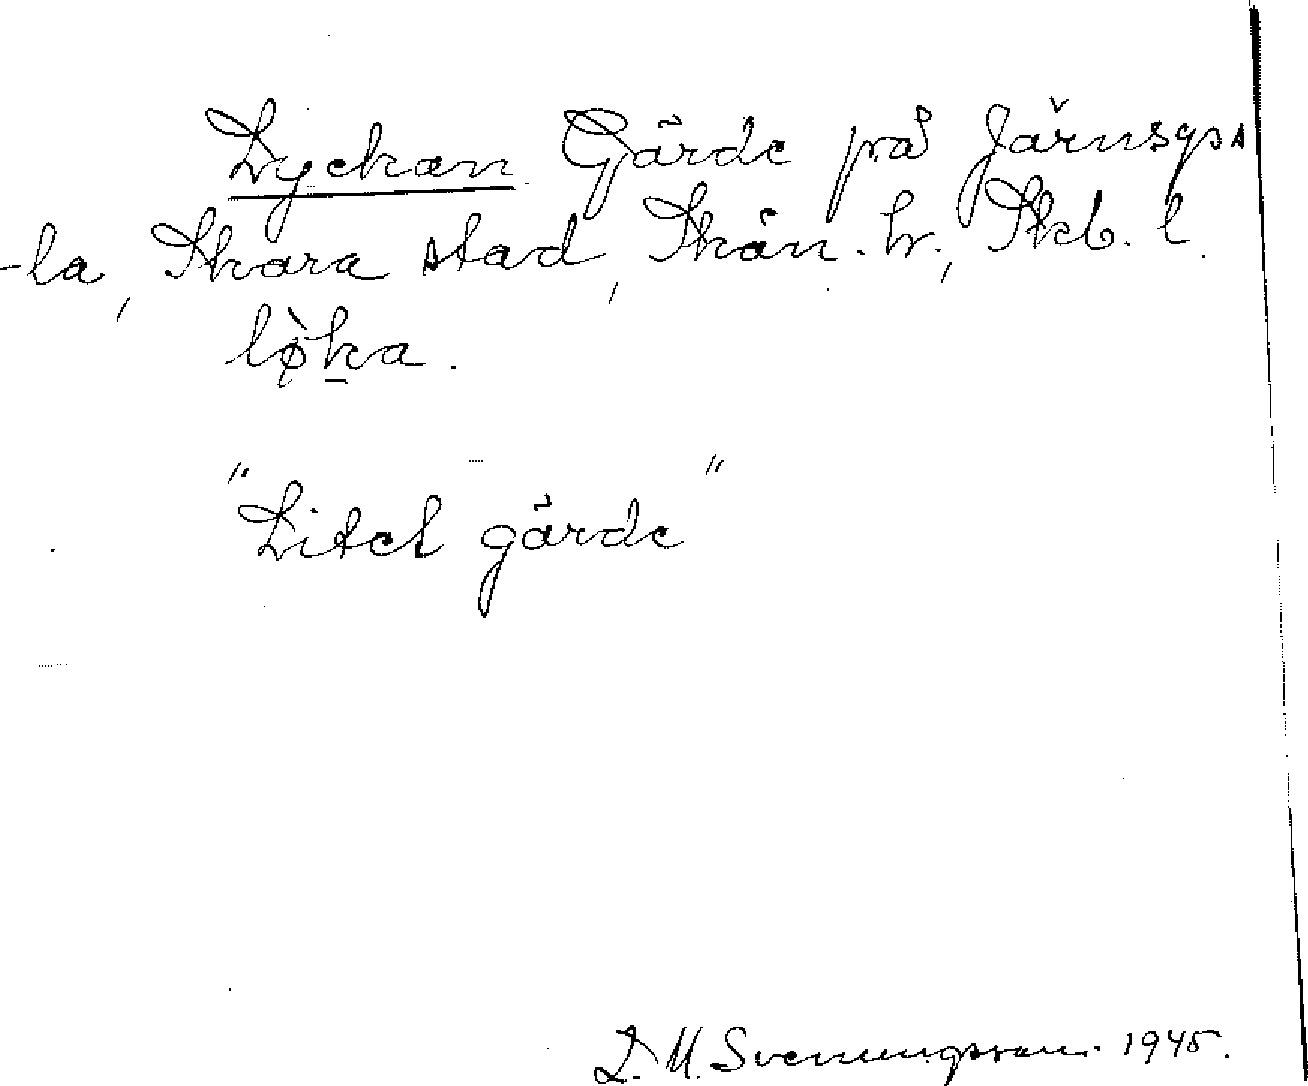 Lyckan Gärde på Järnsgss
-la, Skara stad, Skån. hr., Skb. l.
lø̀ka.
"Litet gärde"
D. M. Svenningsson. 1945.